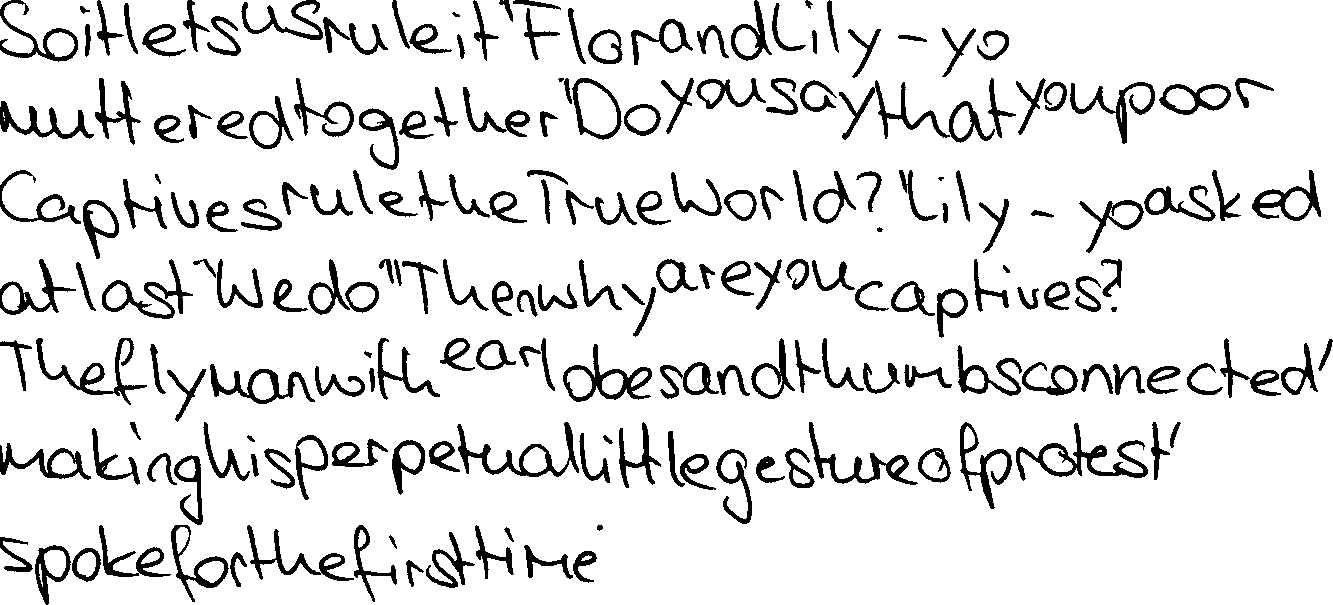 So it lets us rule it" Flor and Lily-yo
muttered together "Do you say that you poor
Captives rule the True World?" Lily-yo asked
at last "We do" "Then why are you captives?
The flyman with earlobes and thumbs connected,
making his perpetual little gesture of protest,
spoke for the first time.